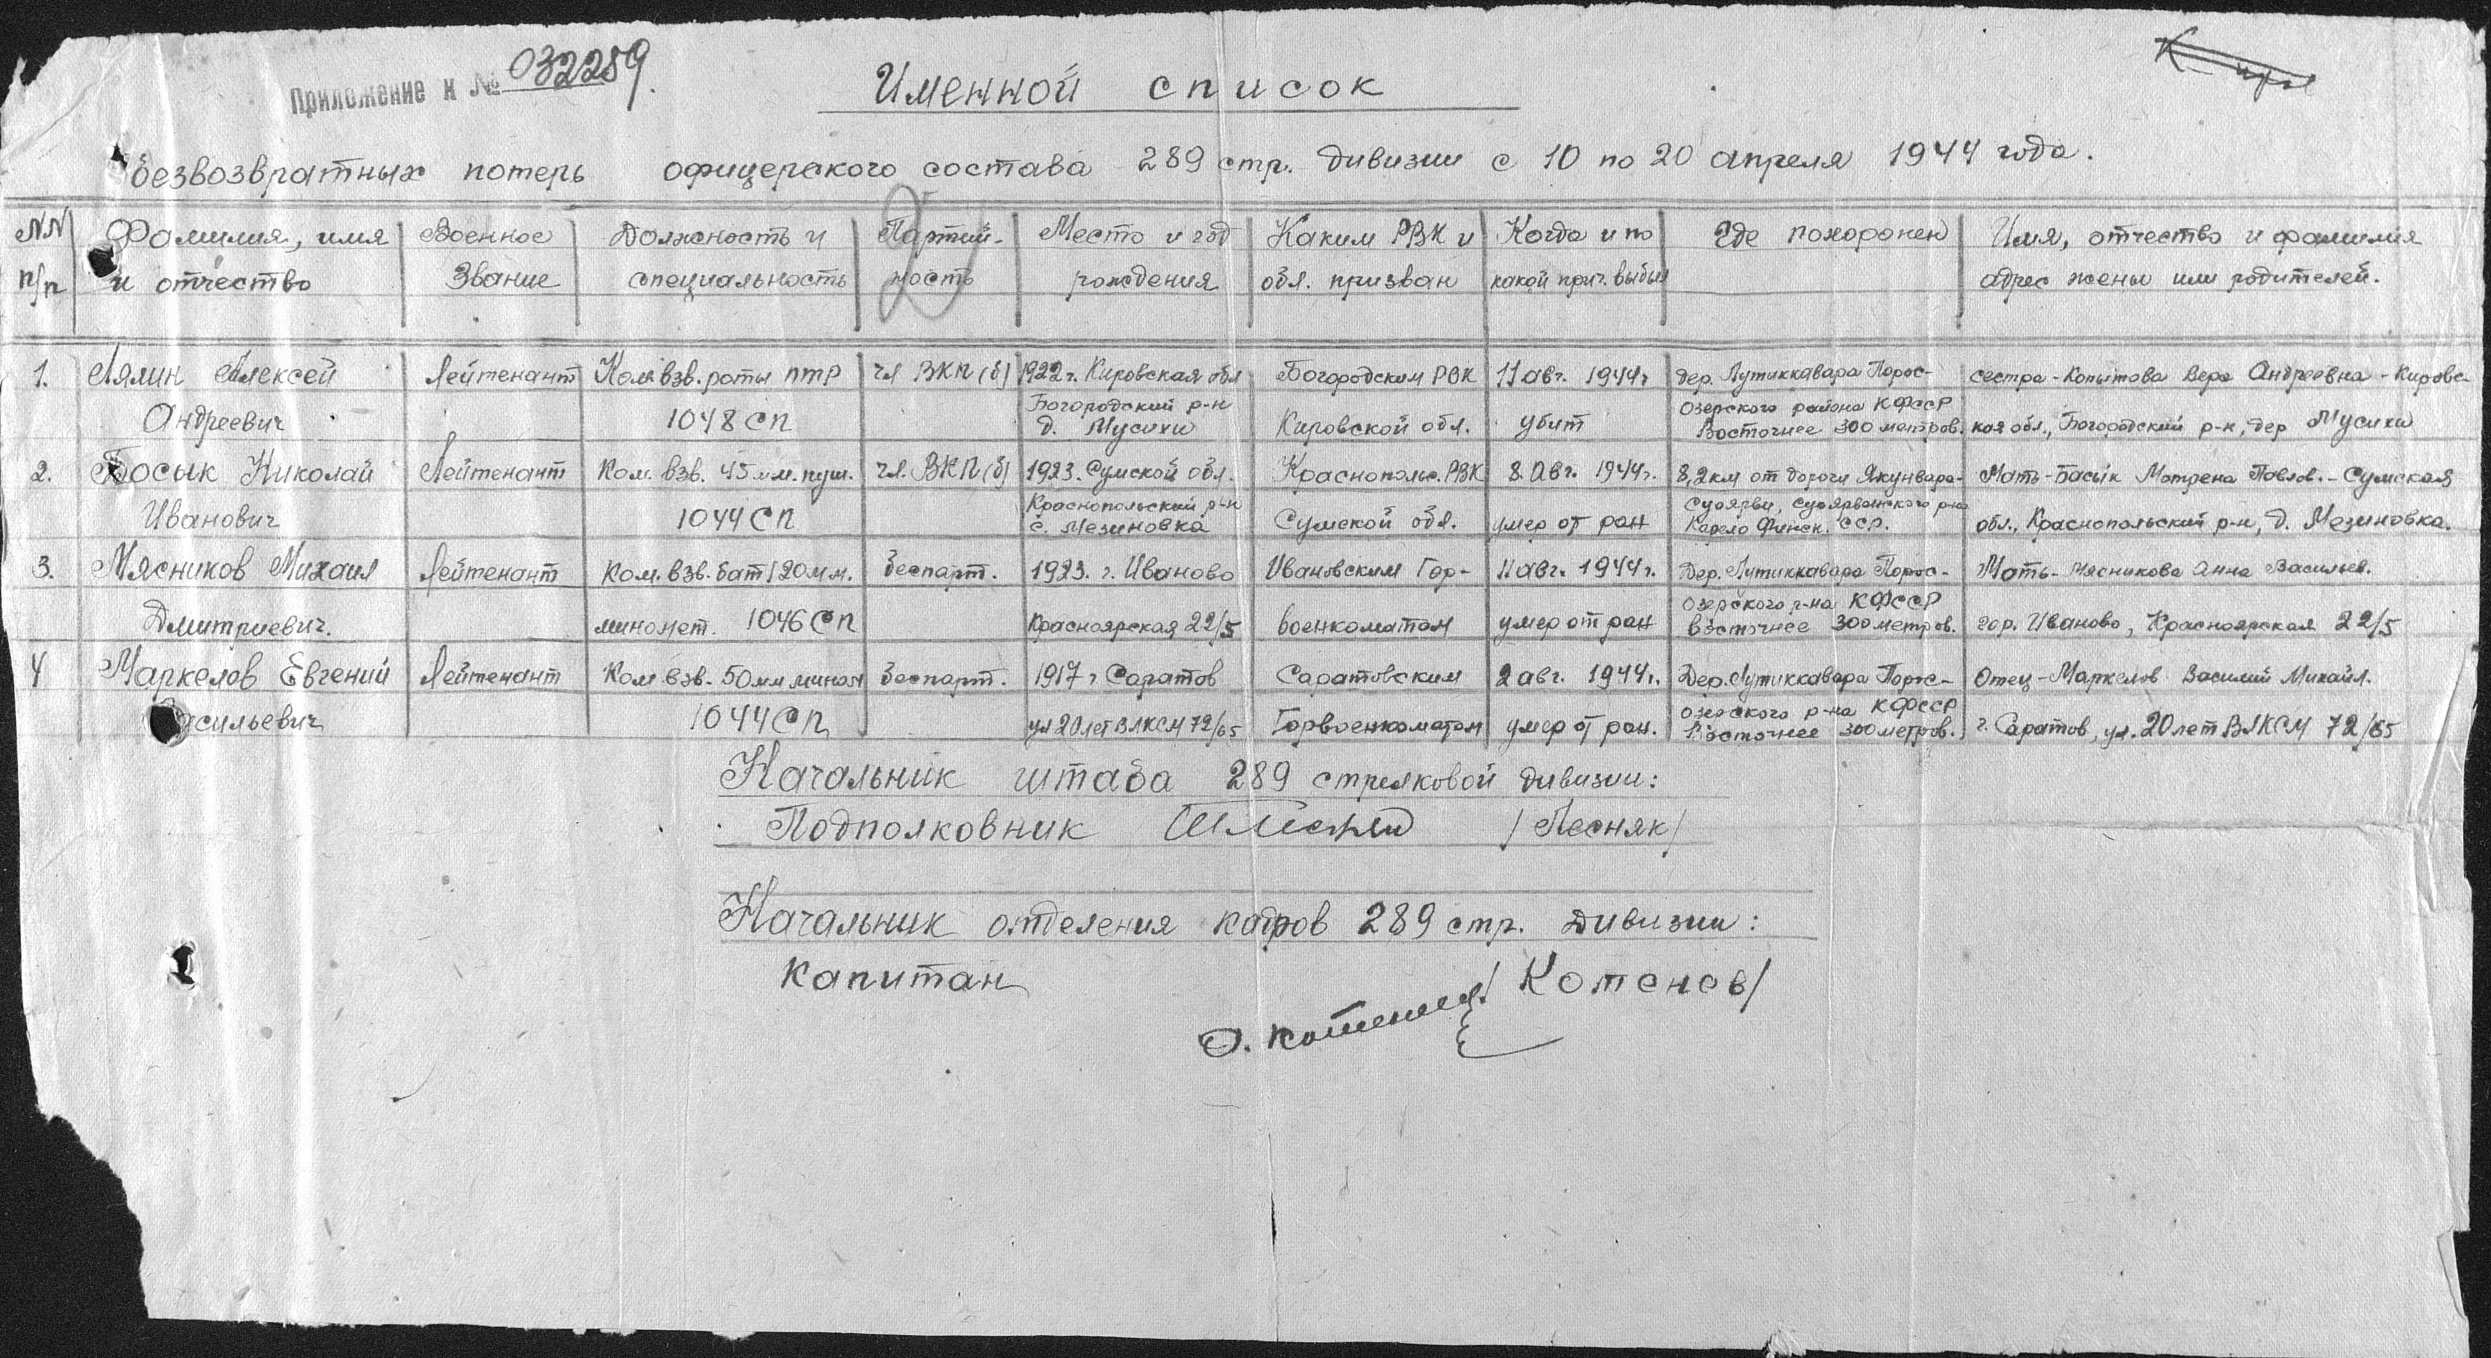 Приложение к № 032289.
Именной список
безвозвратных потерь офицерского состава 289 стр. дивизии с 10 по 20 апреля 1944 года.
NN п/п | Фамилия, имя и отчество | Военное Звание | Должность и специальность | Партий-ность | Место и год рождения | Каким РВК и обл. призван | Когда и по какой прич. выбыл | Где похоронен | Имя, отчество и фамилия адрес жены или родителей.
1. Лялин Алексей | Лейтенант | Ком. взв. роты ПТР | чл ВКП(б) | 1922 г. Кировская обл | Богородским РВК | 11 авг. 1944 г | дер. Лутиккавара Порос- | сестра - Копытова Вера Андреевна - Кировс-
Андреевич | 1048 СП | Богородский р-н д. Мусихи | Кировской обл. | убит | озерского района КФССР Восточнее 300 метров. | кая обл., Богородский р-н, дер Мусихи
2. Босык Николай | Лейтенант | Ком. взв. 45 мм. пуш. | чл. ВКП(б) | 1923. Сумской обл. | Краснопольс. РВК | 8 Авг. 1944 г. | 8,2 км от дороги Якунвара- | Мать - Басык Матрена Павлов. - Сумская
Иванович | 1044 СП | Краснопольский р-н с. Мезиновка | Сумской обл. | умер от ран | Суоярви, Суоярвинского р-на Карело Финск. ССР. | обл., Краснопольский р-н, д. Мезиновка.
3. Мясников Михаил | Лейтенант | Ком. взв. бат 120 мм. | беспарт. | 1923. г. Иваново | Ивановским Гор- | 11 авг. 1944 г. | Дер. Лутиккавара Порос- | Мать - Мясникова Анна Васильев.
Дмитриевич. | миномет. 1046 СП | Красноярская 22/5 | военкоматом | умер от ран | озерского р-на КФССР восточнее 300 метров. | гор. Иваново, Красноярская 22/5
4 Маркелов Евгений | Лейтенант | Ком взв. 50 мм мином | беспарт. | 1917 г Саратов | Саратовским | 2 авг. 1944 г. | Дер. Лутиккавара Порос- | Отец - Маркелов Василий Михайл.
Васильевич | 1044 СП | ул 20 лет ВЛКСМ 72/65 | Горвоенкоматом | умер от ран. | озерского р-на КФССР Восточнее 300 метров. | г. Саратов, ул. 20 лет ВЛКСМ 72/65
Начальник штаба 289 стрелковой дивизии:
Подполковник /Песняк/
Начальник отделения кадров 289 стр. дивизии:
Капитан /Котенев/